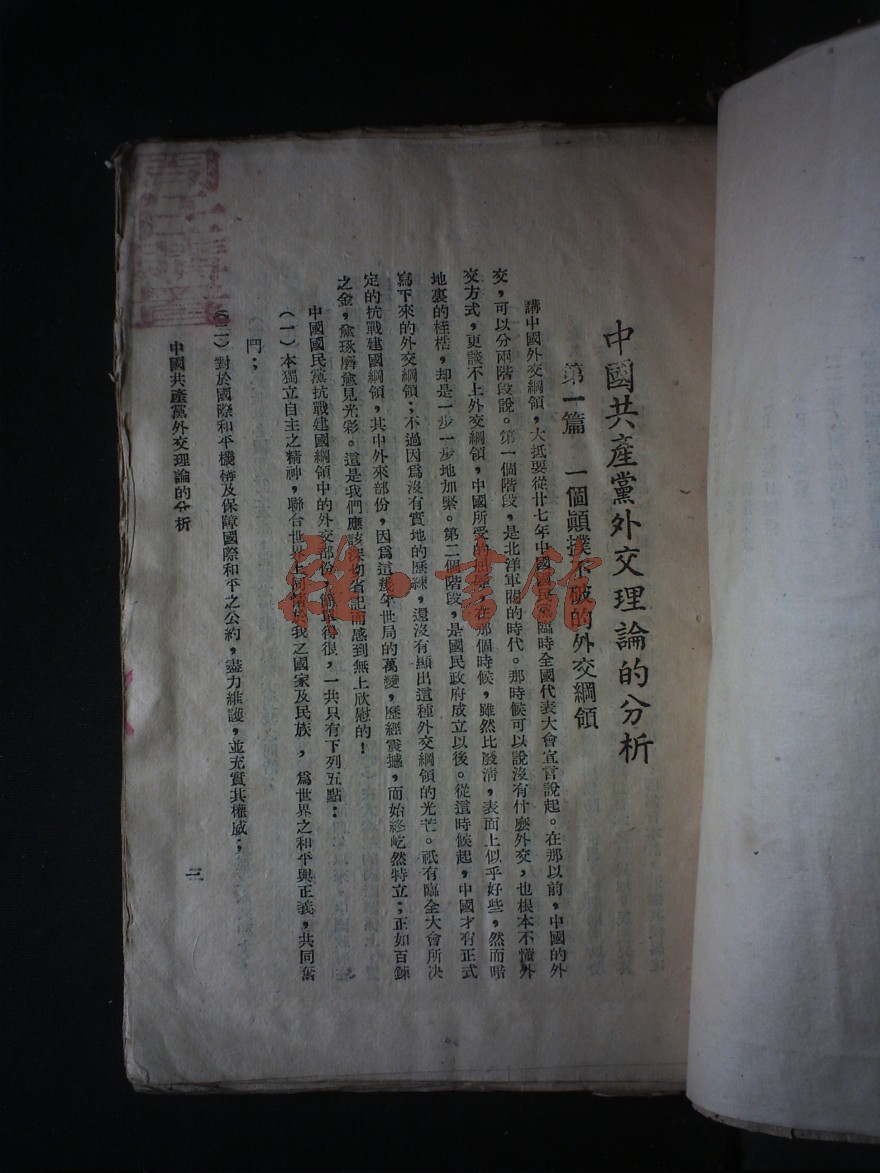 中國共產黨外交理論的分析
第一篇　一個顚撲不破的外交綱領
講中國外交綱領，大抵要從廿七年中國國民黨臨時全國代表大會宣言說起。在那以前，中國的外
交，可以分兩階段說。第一個階段，是北洋軍閥的時代。那時候可以說沒有什麼外交，也根本不懂外
交方式，更談不上外交綱領，中國所受的屈辱，在那個時候，雖然比晚淸，表面上似乎好些，然而暗
地裏的桎梏，却是一步一步地加緊。第二個階段，是國民政府成立以後。從這時候起，中國才有正式
寫下來的外交綱領；不過因爲沒有實地的歷練，還沒有顯出這種外交綱領的光芒。祇有臨全大會所決
定的抗戰建國綱領，其中外來部份，因爲這幾年世局的萬變，歷經震撼，而始終屹然特立；正如百鍊
之金，愈琢磨愈見光彩。這是我們應該深切省記而感到無上欣慰的！
中國國民黨抗戰建國綱領中的外交部份，簡單得很，一共只有下列五點：
（一）本獨立自主之精神，聯合世界上同情於我之國家及民族，爲世界之和平與正義，共同奮
鬥；
（二）對於國際和平機構及保障國際和平之公約，盡力維護，並充實其權威；
中國共產黨外交理論的分析
三
書館